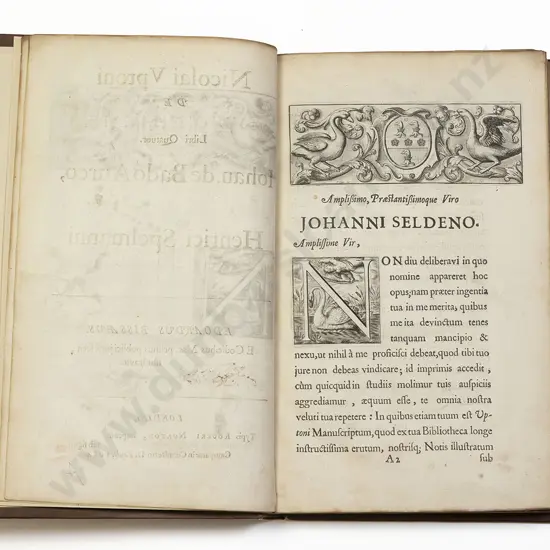 Nicolai Vptoni
DE
Libri Quatuor.
Iohan. de Bado Aureo,
Henrici Spelmanni
EDOARDUS BISSÆUS
Amplißimo, Præstantißimoque Viro
JOHANNI SELDENO.
Amplißime Vir,
NON diu deliberavi in quo
nomine appareret hoc
opus; nam præter ingentia
tua in me merita, quibus
me ita devinctum tenes
tanquam mancipio &
nexu, ut nihil à me proficisci debeat, quod tibi tuo
jure non debeas vindicare; id imprimis accedit,
cùm quicquid in studiis molimur tuis auspiciis
aggrediamur, æquum esse, te omnia nostra
veluti tua repetere: In quibus etiam tuum est Up-
toni Manuscriptum, quod ex tua Bibliotheca longe
instructissima erutum, nostrisq; Notis illustratum
A2 sub